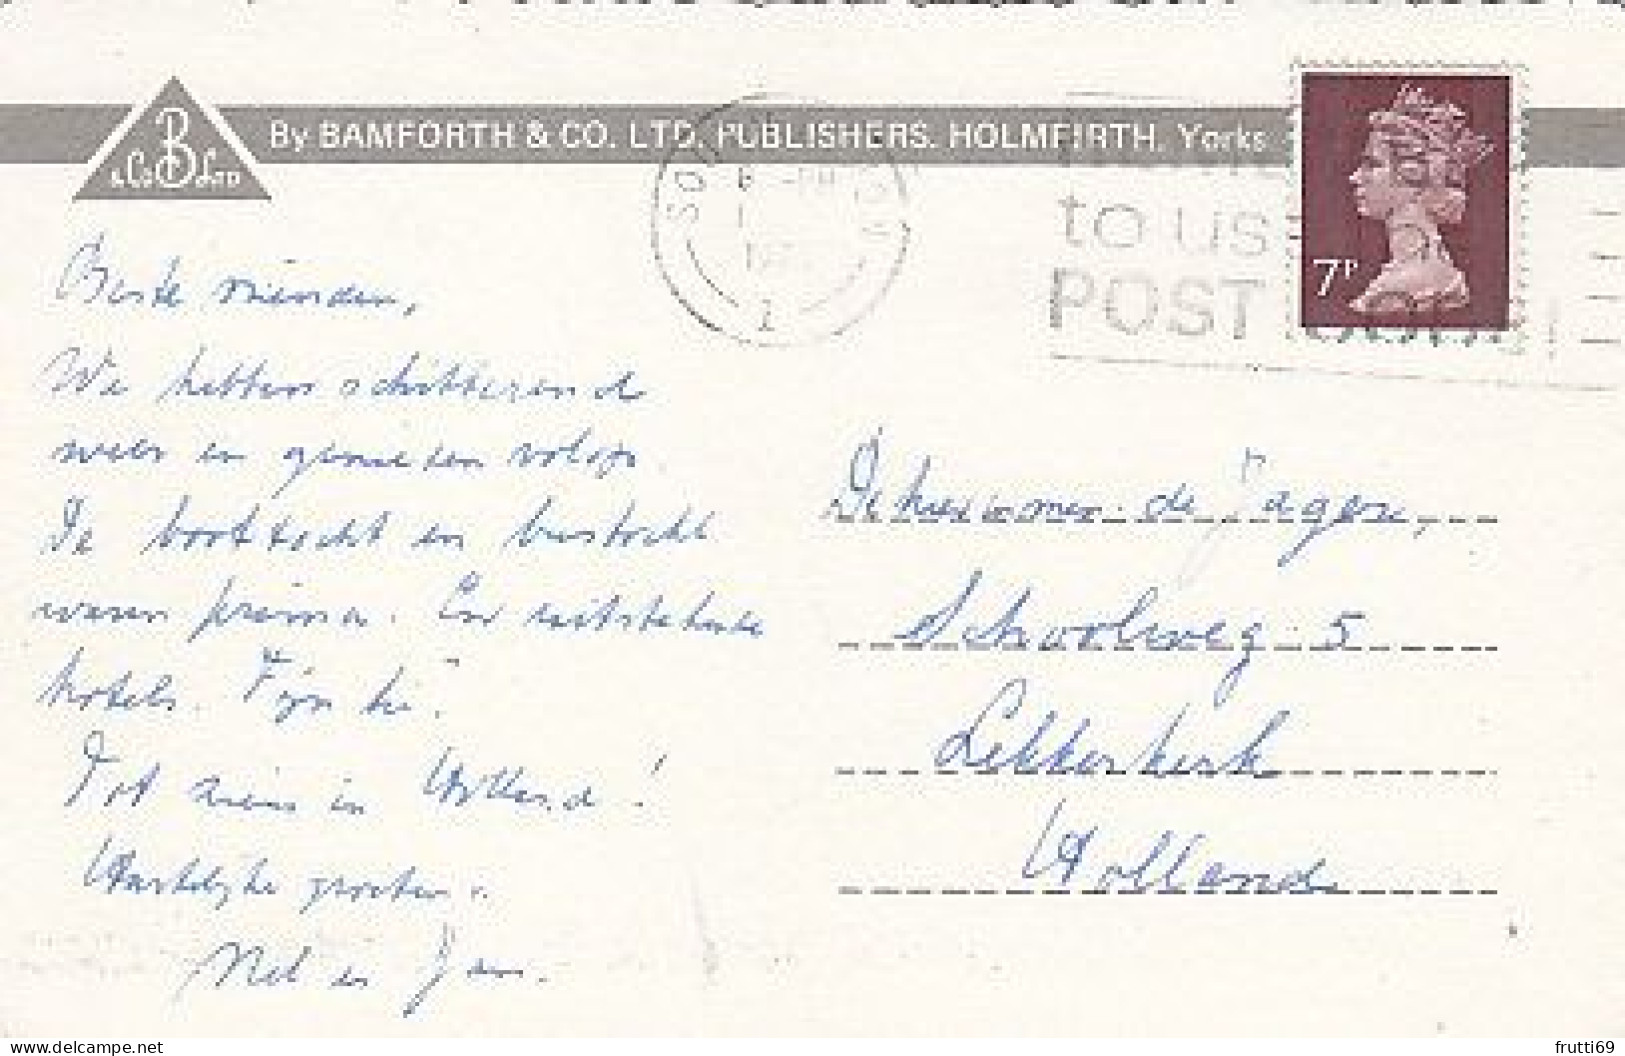 By BAMFORTH & CO. LTD. PUBLISHERS. HOLMFIRTH, Yorks
B
& Co Ltd
to us
POST
7P
Beste vrienden,
We hebben schitterend
weer en genieten volop.
De boottocht en bustocht
waren prima. En uitstekende
hotels. Fijn hè.
Tot ziens in Holland!
Hartelijke groeten.
Nel en Jan.
de Jager,
Schoolweg 5
Lekkerkerk
Holland
frutti69
delcampe.net